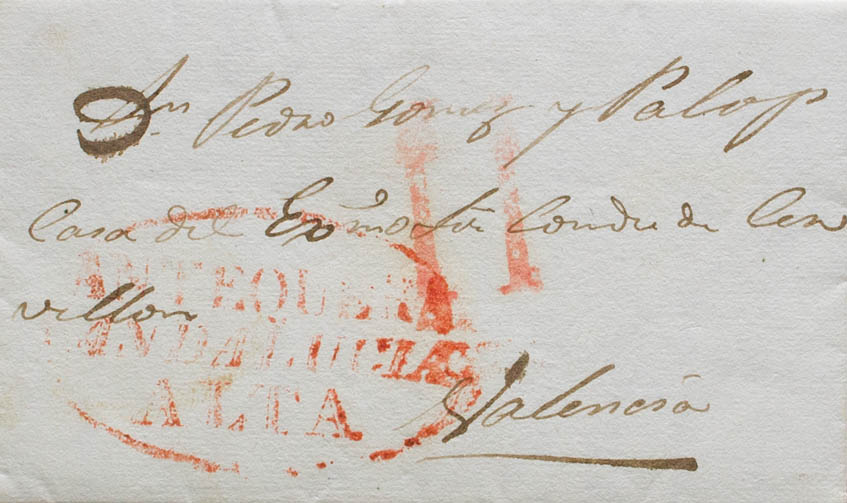 Dn Pedro Gomez y Palop
Casa del Exmo Sr Conde de Cer
vellon
Valencia
11
ANTEQUERA
ANDALUCIA
ALTA